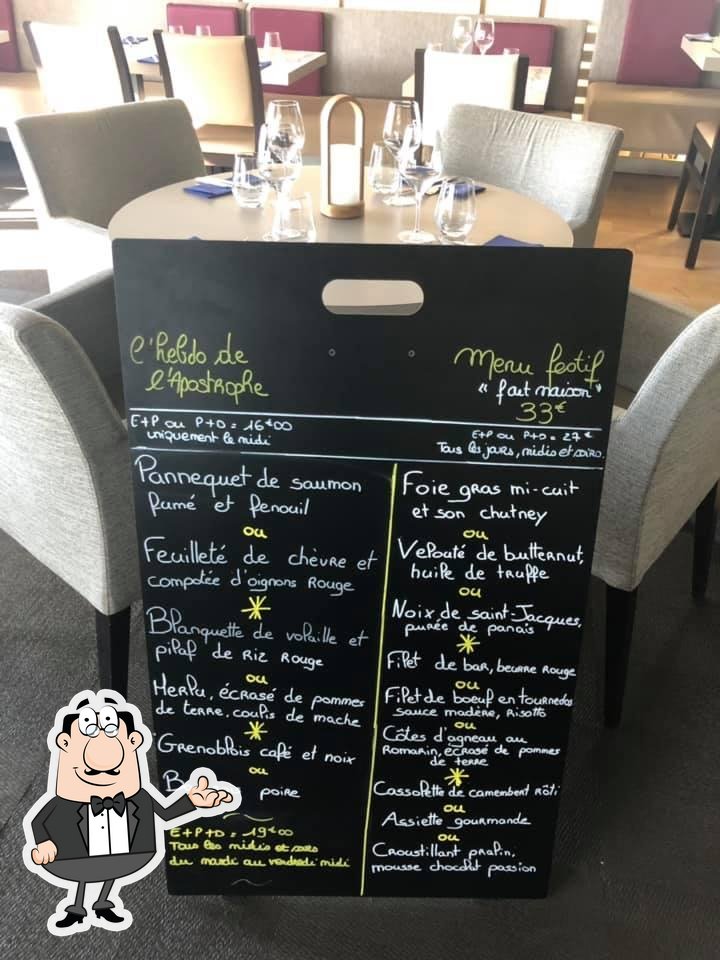 l'hebdo de
l'Apostrophe
E+P ou P+D = 16€00
uniquement le midi
Pannequet de saumon
fumé et fenouil
ou
Feuilleté de chèvre et
compotée d'oignons Rouge
Blanquette de volaille et
pilaf de Riz Rouge
ou
Merlu, écrasé de pommes
de terre, coulis de mache
Grenoblois café et noix
ou
poire
E+P+D = 19€00
Tous les midis et soirs
du mardi au vendredi midi
Menu festif
"fait maison"
33€
E+P ou P+D = 27€
Tous les jours, midis et soirs.
Foie gras mi-cuit
et son chutney
ou
Velouté de butternut,
huile de truffe
ou
Noix de saint-Jacques,
purée de panais
Filet de bar, beurre rouge
ou
Filet de boeuf en tournedos
sauce madère, Risotto
ou
Côtes d'agneau au
Romarin, écrasé de pommes
de terre
Cassolette de camembert rôti
ou
Assiette gourmande
ou
Croustillant pralin,
mousse chocolat passion